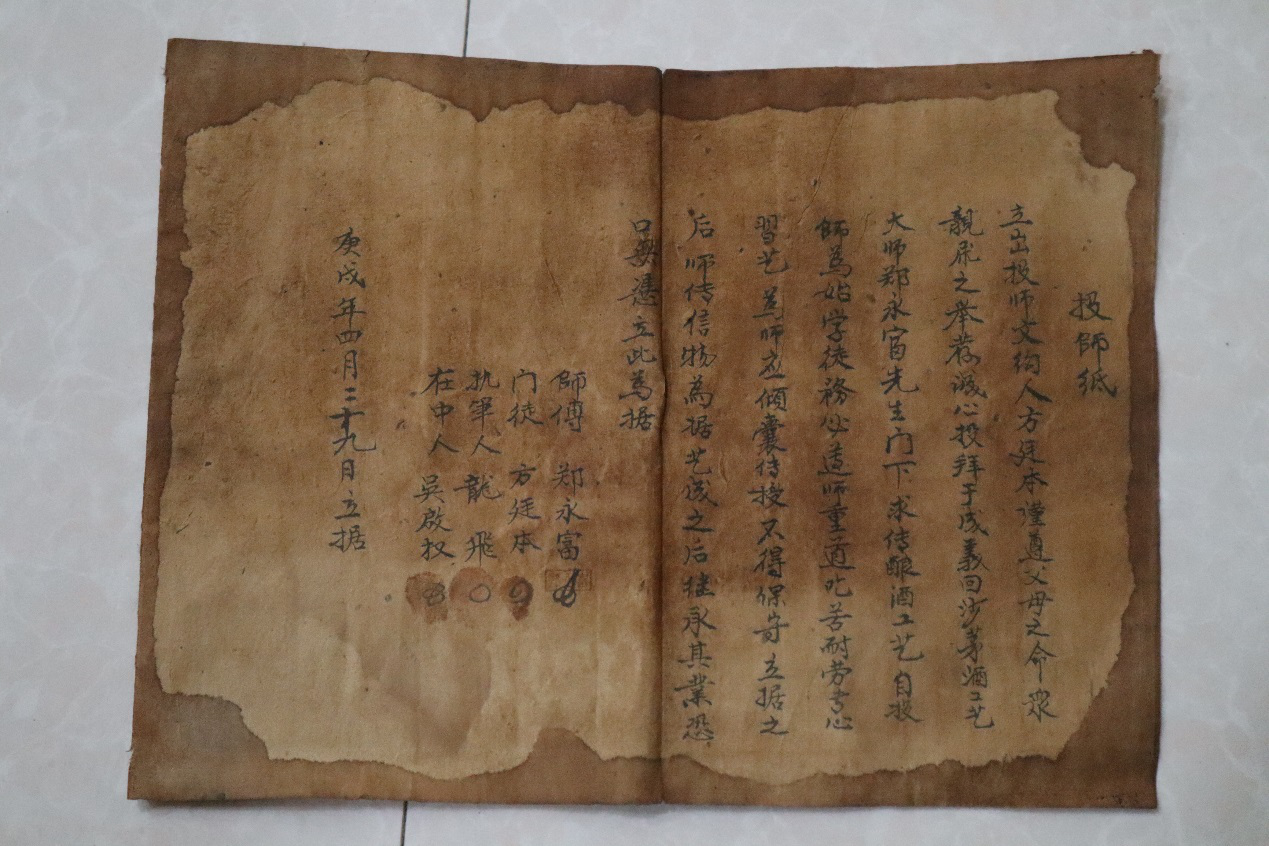 投師纸
立出投师文约人方廷本谨遵父母之命眾
親朋之举荐诚心投拜于成義回沙茅酒工艺
大师郑永富先生门下求传酿酒工艺自投
師為始学徒務必遵师重道吃苦耐劳专心
習艺為师应倾囊传授不得保守立据之
后师传信物為据艺成之后继承其業恐
口無憑立此為据
師傅 郑永富
门徒 方廷本
执筆人 龍飛
在中人 吳啟权
庚戌年四月二十九日立据